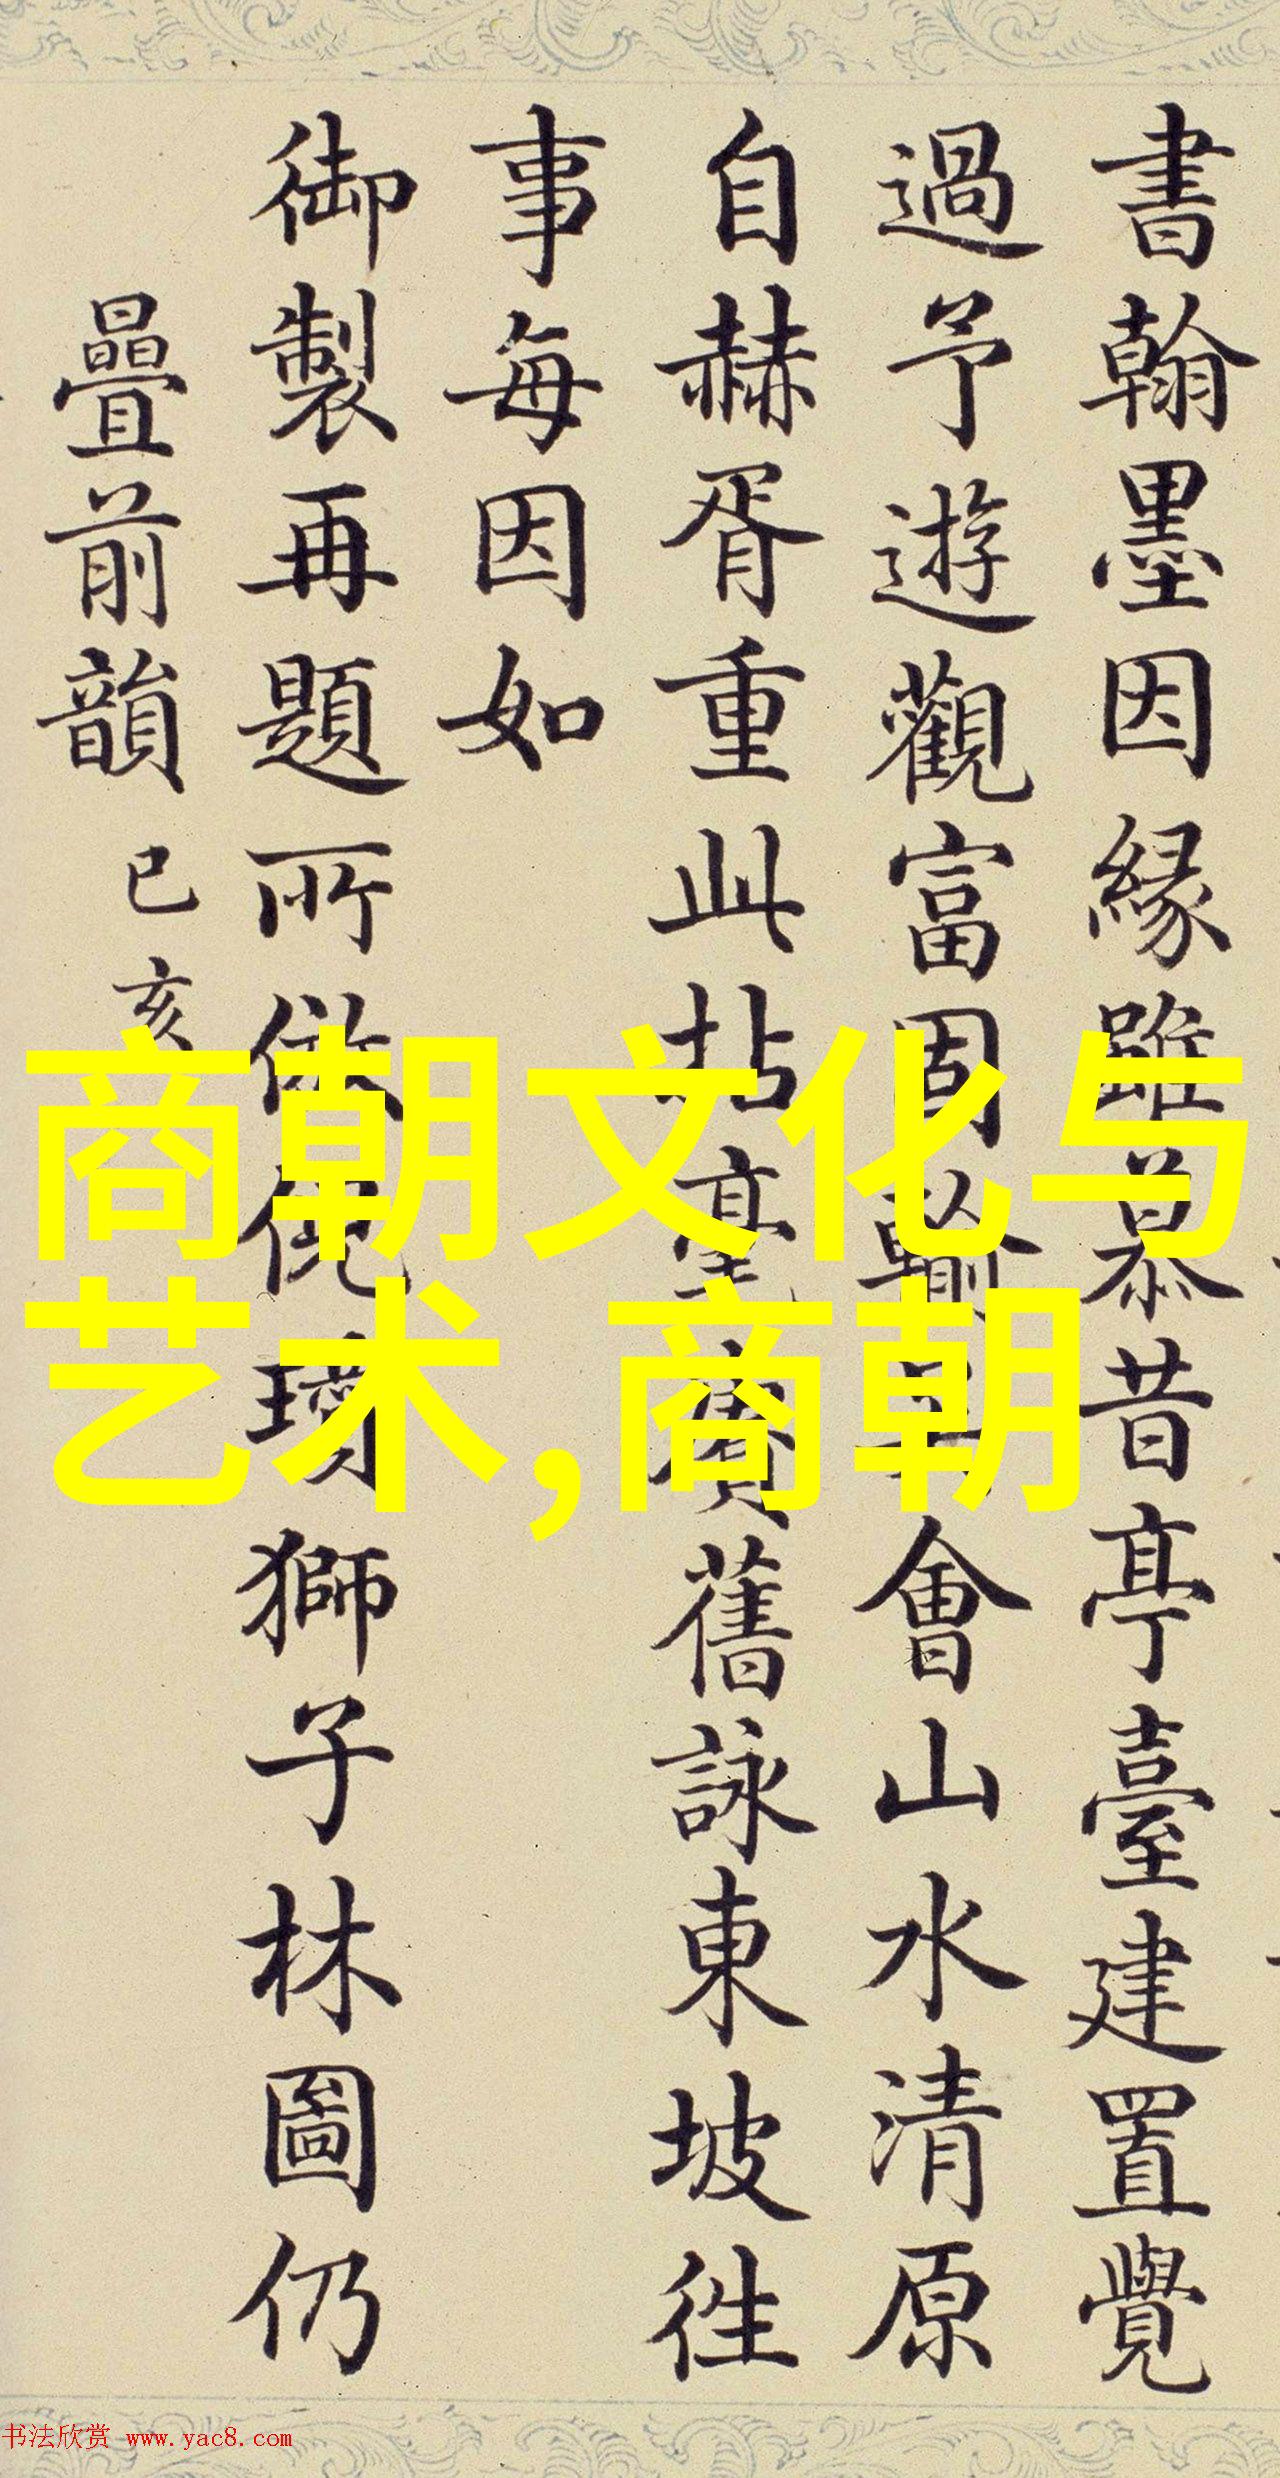 書翰墨因緣雖慕昔亭臺建置覺
過予遊觀富固輸會山水清原
自赫胥重此拈毫賡舊詠東坡徃
事每因如
御製再題所倣倪瓚獅子林圖仍
疊前韻 己亥
商朝文化与
艺术,商朝
书法欣赏 www.yac8.com